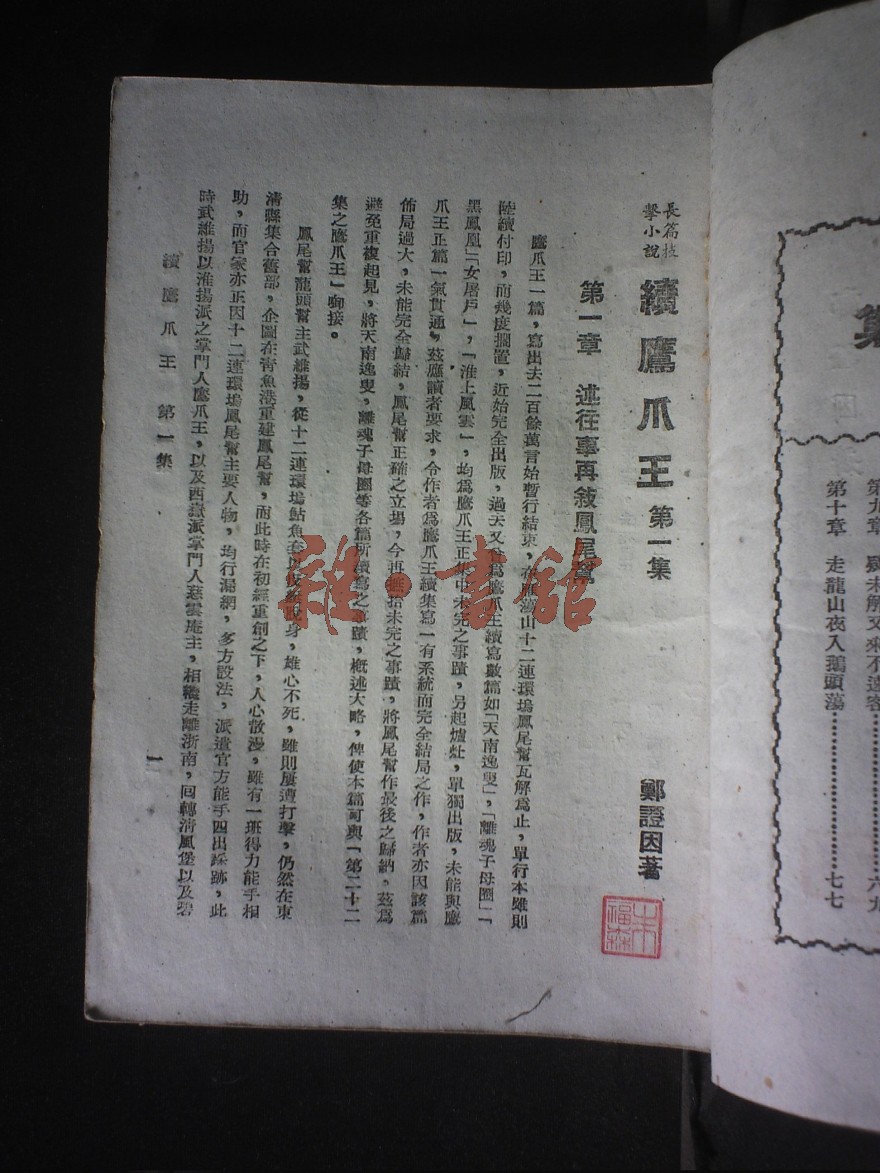 集
第九章　疑未解又來不速客………………六九
第十章　走龍山夜入鵝頭蕩………………七七
長篇技擊小說
續鷹爪王　第一集
鄭證因著
第一章　述往事再敍鳳尾幫
鷹爪王一篇，寫出去二百餘萬言始暫行結束，在雁蕩山十二連環塢鳳尾幫瓦解爲止，單行本雖則
陸續付印，而幾度擱置，近始完全出版，過去又曾爲鷹爪王續寫數篇如「天南逸叟」，「離魂子母圈」「
黑鳳凰」「女屠戶」，「淮上風雲」，均爲鷹爪王正集中未完之事蹟，另起爐灶，單獨出版，未能與鷹
爪王正篇一氣貫通，茲應讀者要求，令作者爲鷹爪王續集寫一有系統而完全結局之作，作者亦因該篇
佈局過大，未能完全歸結，鳳尾幫正確之立場，今再 拾未完之事蹟，將鳳尾幫作最後之歸納，茲爲
避免重複起見，將天南逸叟，離魂子母圈等各篇所續寫之事蹟，概述大略，俾使本篇可與「第二十二
集之鷹爪王」啣接。
鳳尾幫龍頭幫主武維揚，從十二連環塢鮎魚套 脫身，雄心不死，雖則屢遭打擊，仍然在東
清縣集合舊部，企圖在靑魚港重建鳳尾幫，而此時在初經重創之下，人心散漫，雖有一班得力能手相
助，而官家亦正因十二連環塢鳳尾幫主要人物，均行漏網，多方設法，派遣官方能手四出踩跡，此
時武維揚以淮揚派之掌門人鷹爪王，以及西嶽派掌門人慈雲庵主，相繼走離浙南，回轉清風堡以及碧
續鷹爪王　第一集
一
雜·書館
福森